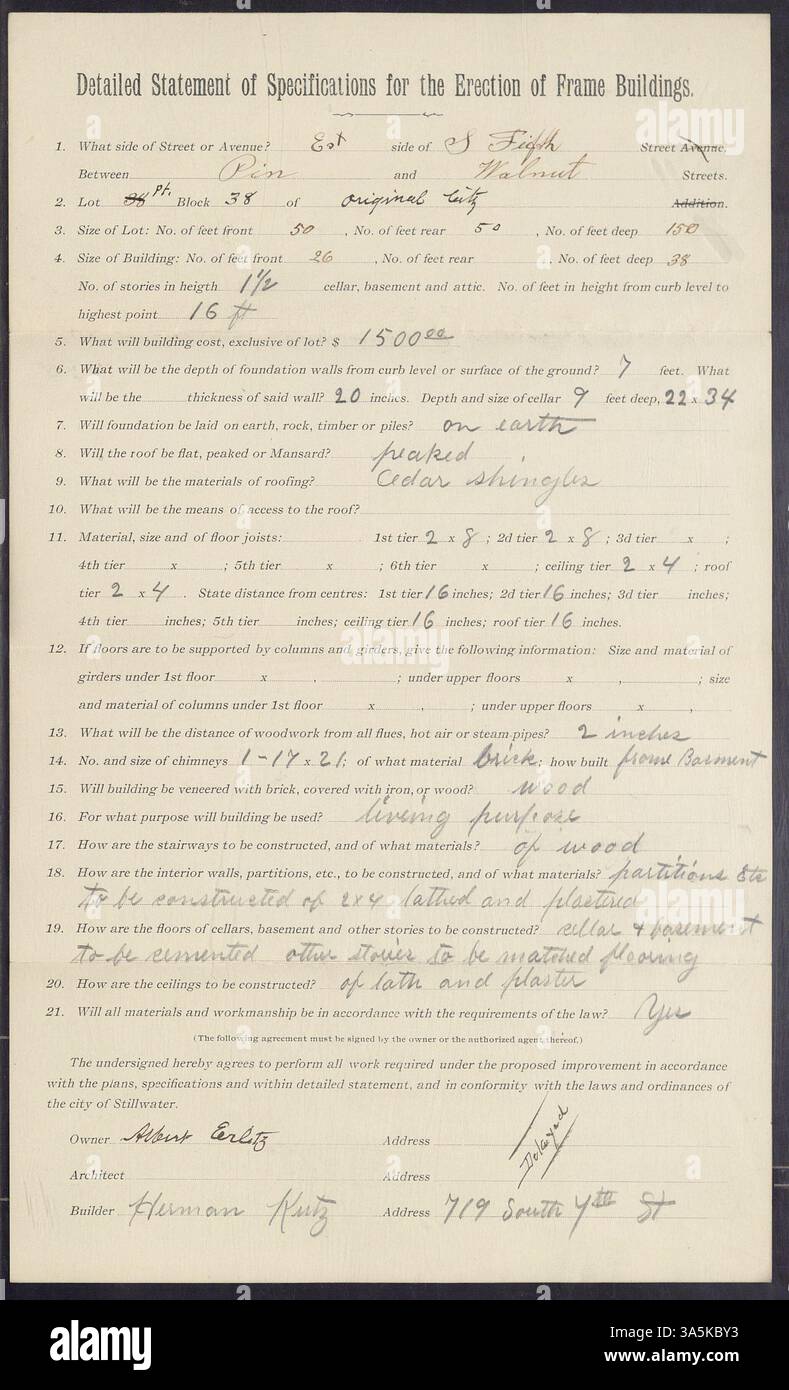 Detailed Statement of Specifications for the Erection of Frame Buildings.
1. What side of Street or Avenue? Est side of S Fifth Street Avenue.
Between Pin and Walnut Streets.
2. Lot 38 Pt. Block 38 of original City Addition.
3. Size of Lot: No. of feet front 50, No. of feet rear 50, No. of feet deep 150
4. Size of Building: No. of feet front 26, No. of feet rear, No. of feet deep 38
No. of stories in heigth 1 1/2 cellar, basement and attic. No. of feet in height from curb level to
highest point 16 ft
5. What will building cost, exclusive of lot? $ 1500 00
6. What will be the depth of foundation walls from curb level or surface of the ground? 7 feet. What
will be the thickness of said wall? 20 inches. Depth and size of cellar 9 feet deep, 22 x 34
7. Will foundation be laid on earth, rock, timber or piles? on earth
8. Will the roof be flat, peaked or Mansard? peaked
9. What will be the materials of roofing? Cedar shingles
10. What will be the means of access to the roof?
11. Material, size and of floor joists: 1st tier 2 x 8 ; 2d tier 2 x 8 ; 3d tier x ;
4th tier x ; 5th tier x ; 6th tier x ; ceiling tier 2 x 4 ; roof
tier 2 x 4 . State distance from centres: 1st tier 16 inches; 2d tier 16 inches; 3d tier inches;
4th tier inches; 5th tier inches; ceiling tier 16 inches; roof tier 16 inches.
12. If floors are to be supported by columns and girders, give the following information: Size and material of
girders under 1st floor x , ; under upper floors x , ; size
and material of columns under 1st floor x , ; under upper floors x ,
13. What will be the distance of woodwork from all flues, hot air or steam pipes? 2 inches
14. No. and size of chimneys 1-17 x 21; of what material brick; how built from Basment
15. Will building be veneered with brick, covered with iron, or wood? wood
16. For what purpose will building be used? liveing purpose
17. How are the stairways to be constructed, and of what materials? of wood
18. How are the interior walls, partitions, etc., to be constructed, and of what materials? partitions Etc
to be constructed of 2x4 lathed and plastered
19. How are the floors of cellars, basement and other stories to be constructed? cellar + basement
to be cemented other stories to be matched flooring
20. How are the ceilings to be constructed? of lath and plaster
21. Will all materials and workmanship be in accordance with the requirements of the law? Yes
(The following agreement must be signed by the owner or the authorized agent thereof.)
The undersigned hereby agrees to perform all work required under the proposed improvement in accordance
with the plans, specifications and within detailed statement, and in conformity with the laws and ordinances of
the city of Stillwater.
Owner Albert Address
Architect Address
Builder Herman Address 719 South 4th St
alamy
Image ID: 3A5KBY3
www.alamy.com